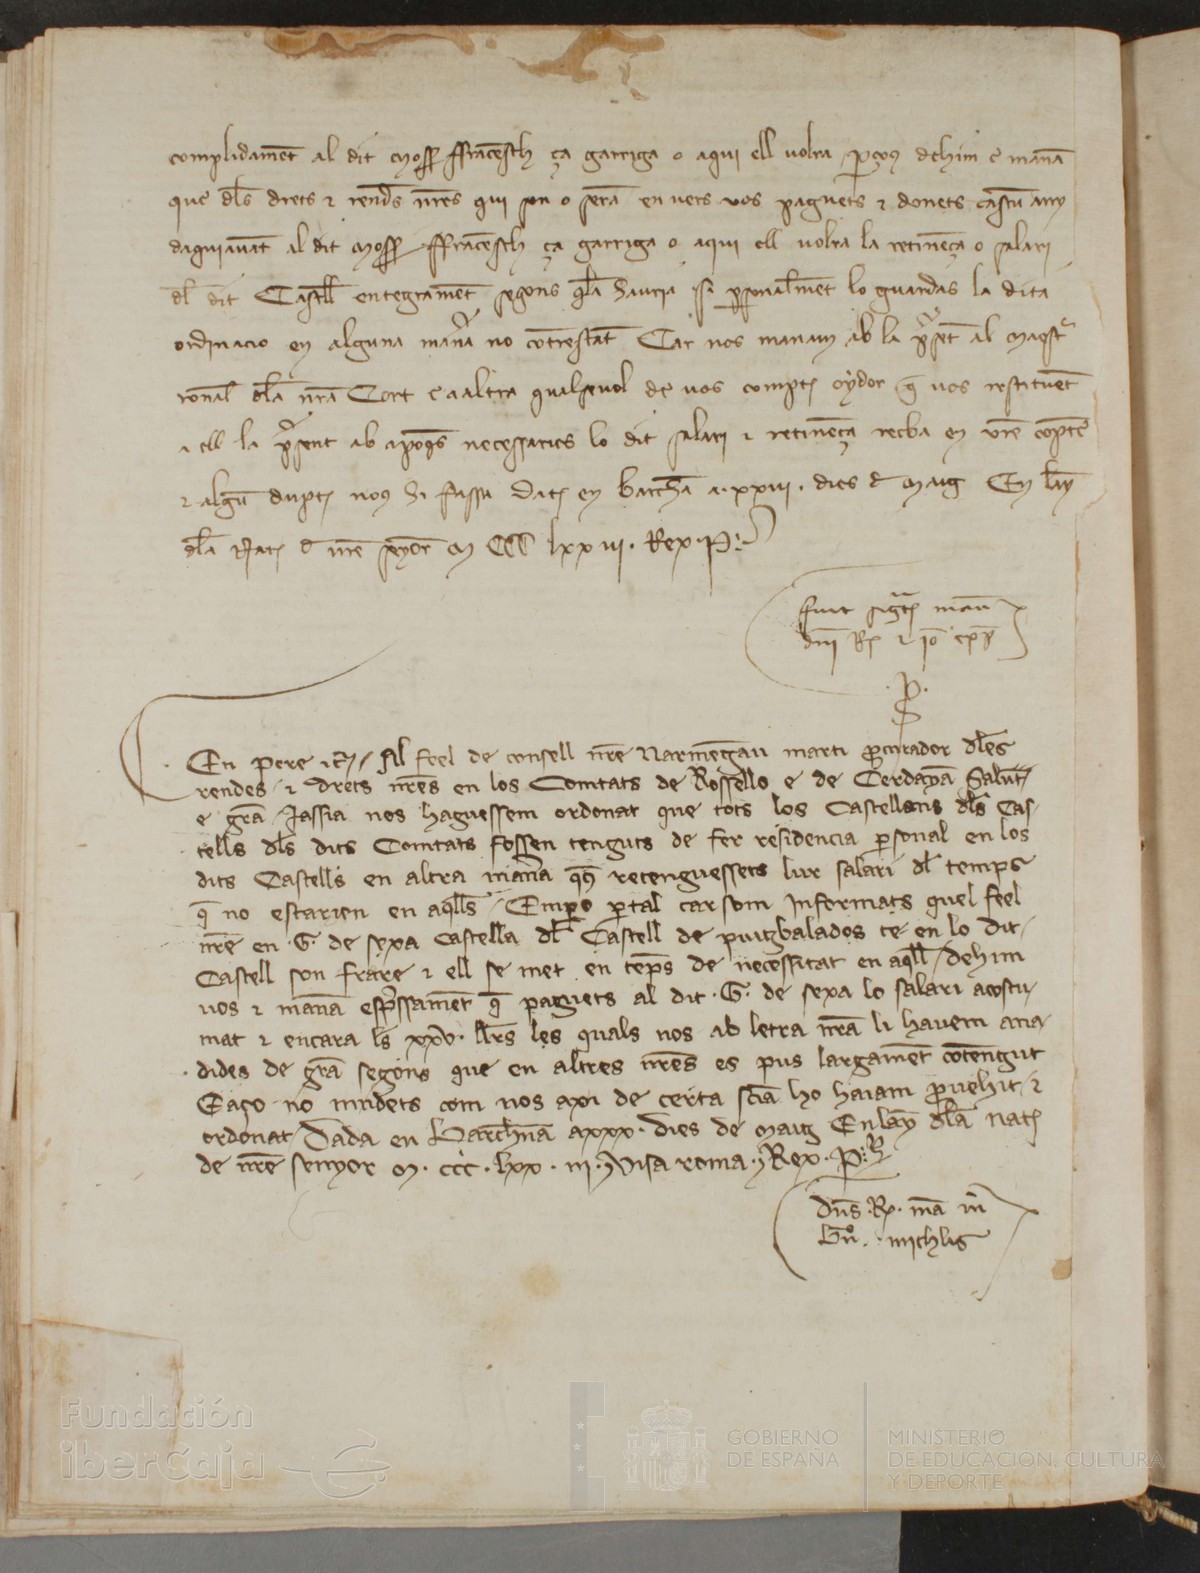 complidament al dit Mossen ffrancesch ça garriga o aqui ell volra perçous dehim e manā
que dels drets z rendes nr̄es qui son o serā en vers vos paguets z donets cascū any
daquiavāt al dit Mossen ffrancesch ça garriga o aqui ell volra la retinēça o salari
dl dit Castell entegramēt segons qla hauria si personalmēt lo guardas la dita
ordinacio en alguna man̄a no cōtrestāt Car nos manam ab la p̄sēt al maestr̄
ronal dla nr̄a Cort e a altra qualsevol de vos compte oydor q̄ vos restituēt
a ell la p̄sent ab apoq̄s necessaries lo dit salari z retinēça reeba en vr̄e cōpte
z algū dupte nous hi fassa Dat en barchn̄a a .xxvii. dies d Maig En lāy
dla Nat d nr̄e seyōr M CCC lxx iii. Rex .P.
fuit sigt manu
dni R z io
.P.
En pere zc̄ / Al feel de consell nr̄e Narmēgau marti p̄curador dles
rendes z drets nr̄es en los Comtats de Rossello e de Cerdayā Salut
e grā Jassia nos haguessem ordonat que tots los Castellans dls Cas-
tells dls dits Comtats fossen tenguts de fer residencia p̄sonal en los
dits Castells en altra man̄a q̄ls retenguessets lur salari dl temps
q̄ no estarien en aqlls / Emp̄o p̄ tal car som informats quel feel
nr̄e en .G. de sexa Castella dl Castell de puigbalados te en lo dit
Castell son frare z ell se met en tēps de necessitat en aqll / dehim
vos z manā esp̄ssamēt q̄ paguets al dit .G. de sexa lo salari acostu-
mat z encara ls xxv. llrs les quals nos ab letra nr̄a li havem ana-
dides de grā segons que en altres nr̄es es pus largamēt cōtengut
Eaço no mudets com nos axi de certa sciā ho haiam p̄vehit z
ordonat Dada en Barchn̄a a xxx. dies de Maig En lāy dla Nat
de nr̄e senyor M. ccc. lxx. iii. Visa roma. Rex .P.
Dn̄s .R. mā m̄
bn̄. michlis
Fundación
iberCaja
GOBIERNO
DE ESPAÑA
MINISTERIO
DE EDUCACIÓN, CULTURA
Y DEPORTE